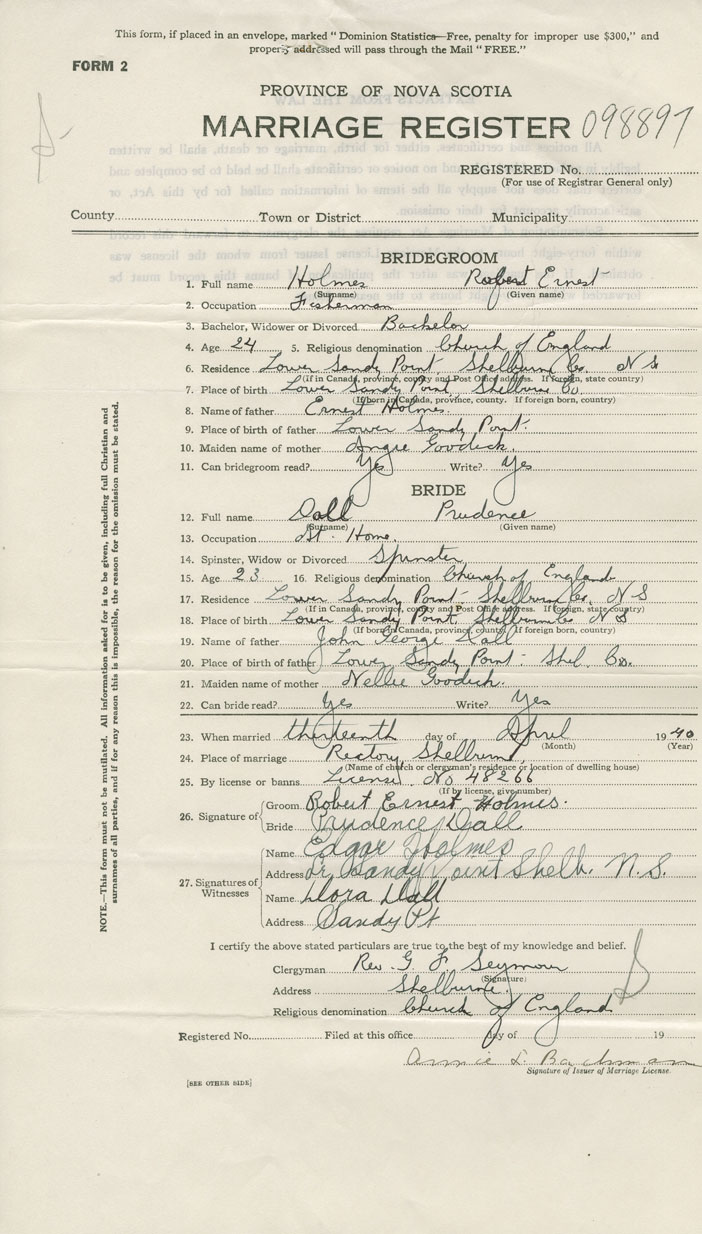 This form, if placed in an envelope, marked "Dominion Statistics—Free, penalty for improper use $300," and
properly addressed will pass through the Mail "FREE."
FORM 2
PROVINCE OF NOVA SCOTIA
MARRIAGE REGISTER 098897
REGISTERED No.
(For use of Registrar General only)
County Town or District Municipality
BRIDEGROOM
1. Full name Holmes Robert Ernest
(Surname) (Given name)
2. Occupation Fisherman
3. Bachelor, Widower or Divorced Bachelor
4. Age 24 5. Religious denomination Church of England
6. Residence Lower Sandy Point, Shelburne Co. N S
(If in Canada, province, county and Post Office address. If foreign, state country)
7. Place of birth Lower Sandy Point, Shelburne Co.
(If born in Canada, province, county. If foreign born, country)
8. Name of father Ernest Holmes.
9. Place of birth of father Lower Sandy Point.
10. Maiden name of mother Angie Goodick.
11. Can bridegroom read? Yes Write? Yes
BRIDE
12. Full name Dall Prudence
(Surname) (Given name)
13. Occupation At Home.
14. Spinster, Widow or Divorced Spinster
15. Age 23 16. Religious denomination Church of England
17. Residence Lower Sandy Point - Shelburne Co. N S
(If in Canada, province, county and Post Office address. If foreign, state country)
18. Place of birth Lower Sandy Point, Shelburne Co N S
(If born in Canada, province, county. If foreign born, country)
19. Name of father John George Dall
20. Place of birth of father Lower Sandy Point - Shel. Co.
21. Maiden name of mother Nellie Goodick.
22. Can bride read? Yes Write? Yes
23. When married thirteenth day of April 1940
(Month) (Year)
24. Place of marriage Rectory, Shelburne,
(Name of church or clergyman's residence or location of dwelling house)
25. By license or banns License. No 48266
(If by license, give number)
26. Signature of Groom Robert Ernest Holmes.
Bride Prudence Dall
27. Signatures of Witnesses
Name Edgar Holmes
Address Lr. Sandy Point Shelb. N.S.
Name Dora Dall
Address Sandy Pt
I certify the above stated particulars are true to the best of my knowledge and belief.
Clergyman Rev. G F Seymour
(Signature)
Address Shelburne.
Religious denomination Church of England
Registered No. Filed at this office day of 19
Annie L. Bachman
Signature of Issuer of Marriage License.
[SEE OTHER SIDE]
NOTE.—This form must not be mutilated. All information asked for is to be given, including full Christian and
surnames of all parties, and if for any reason this is impossible, the reason for the omission must be stated.